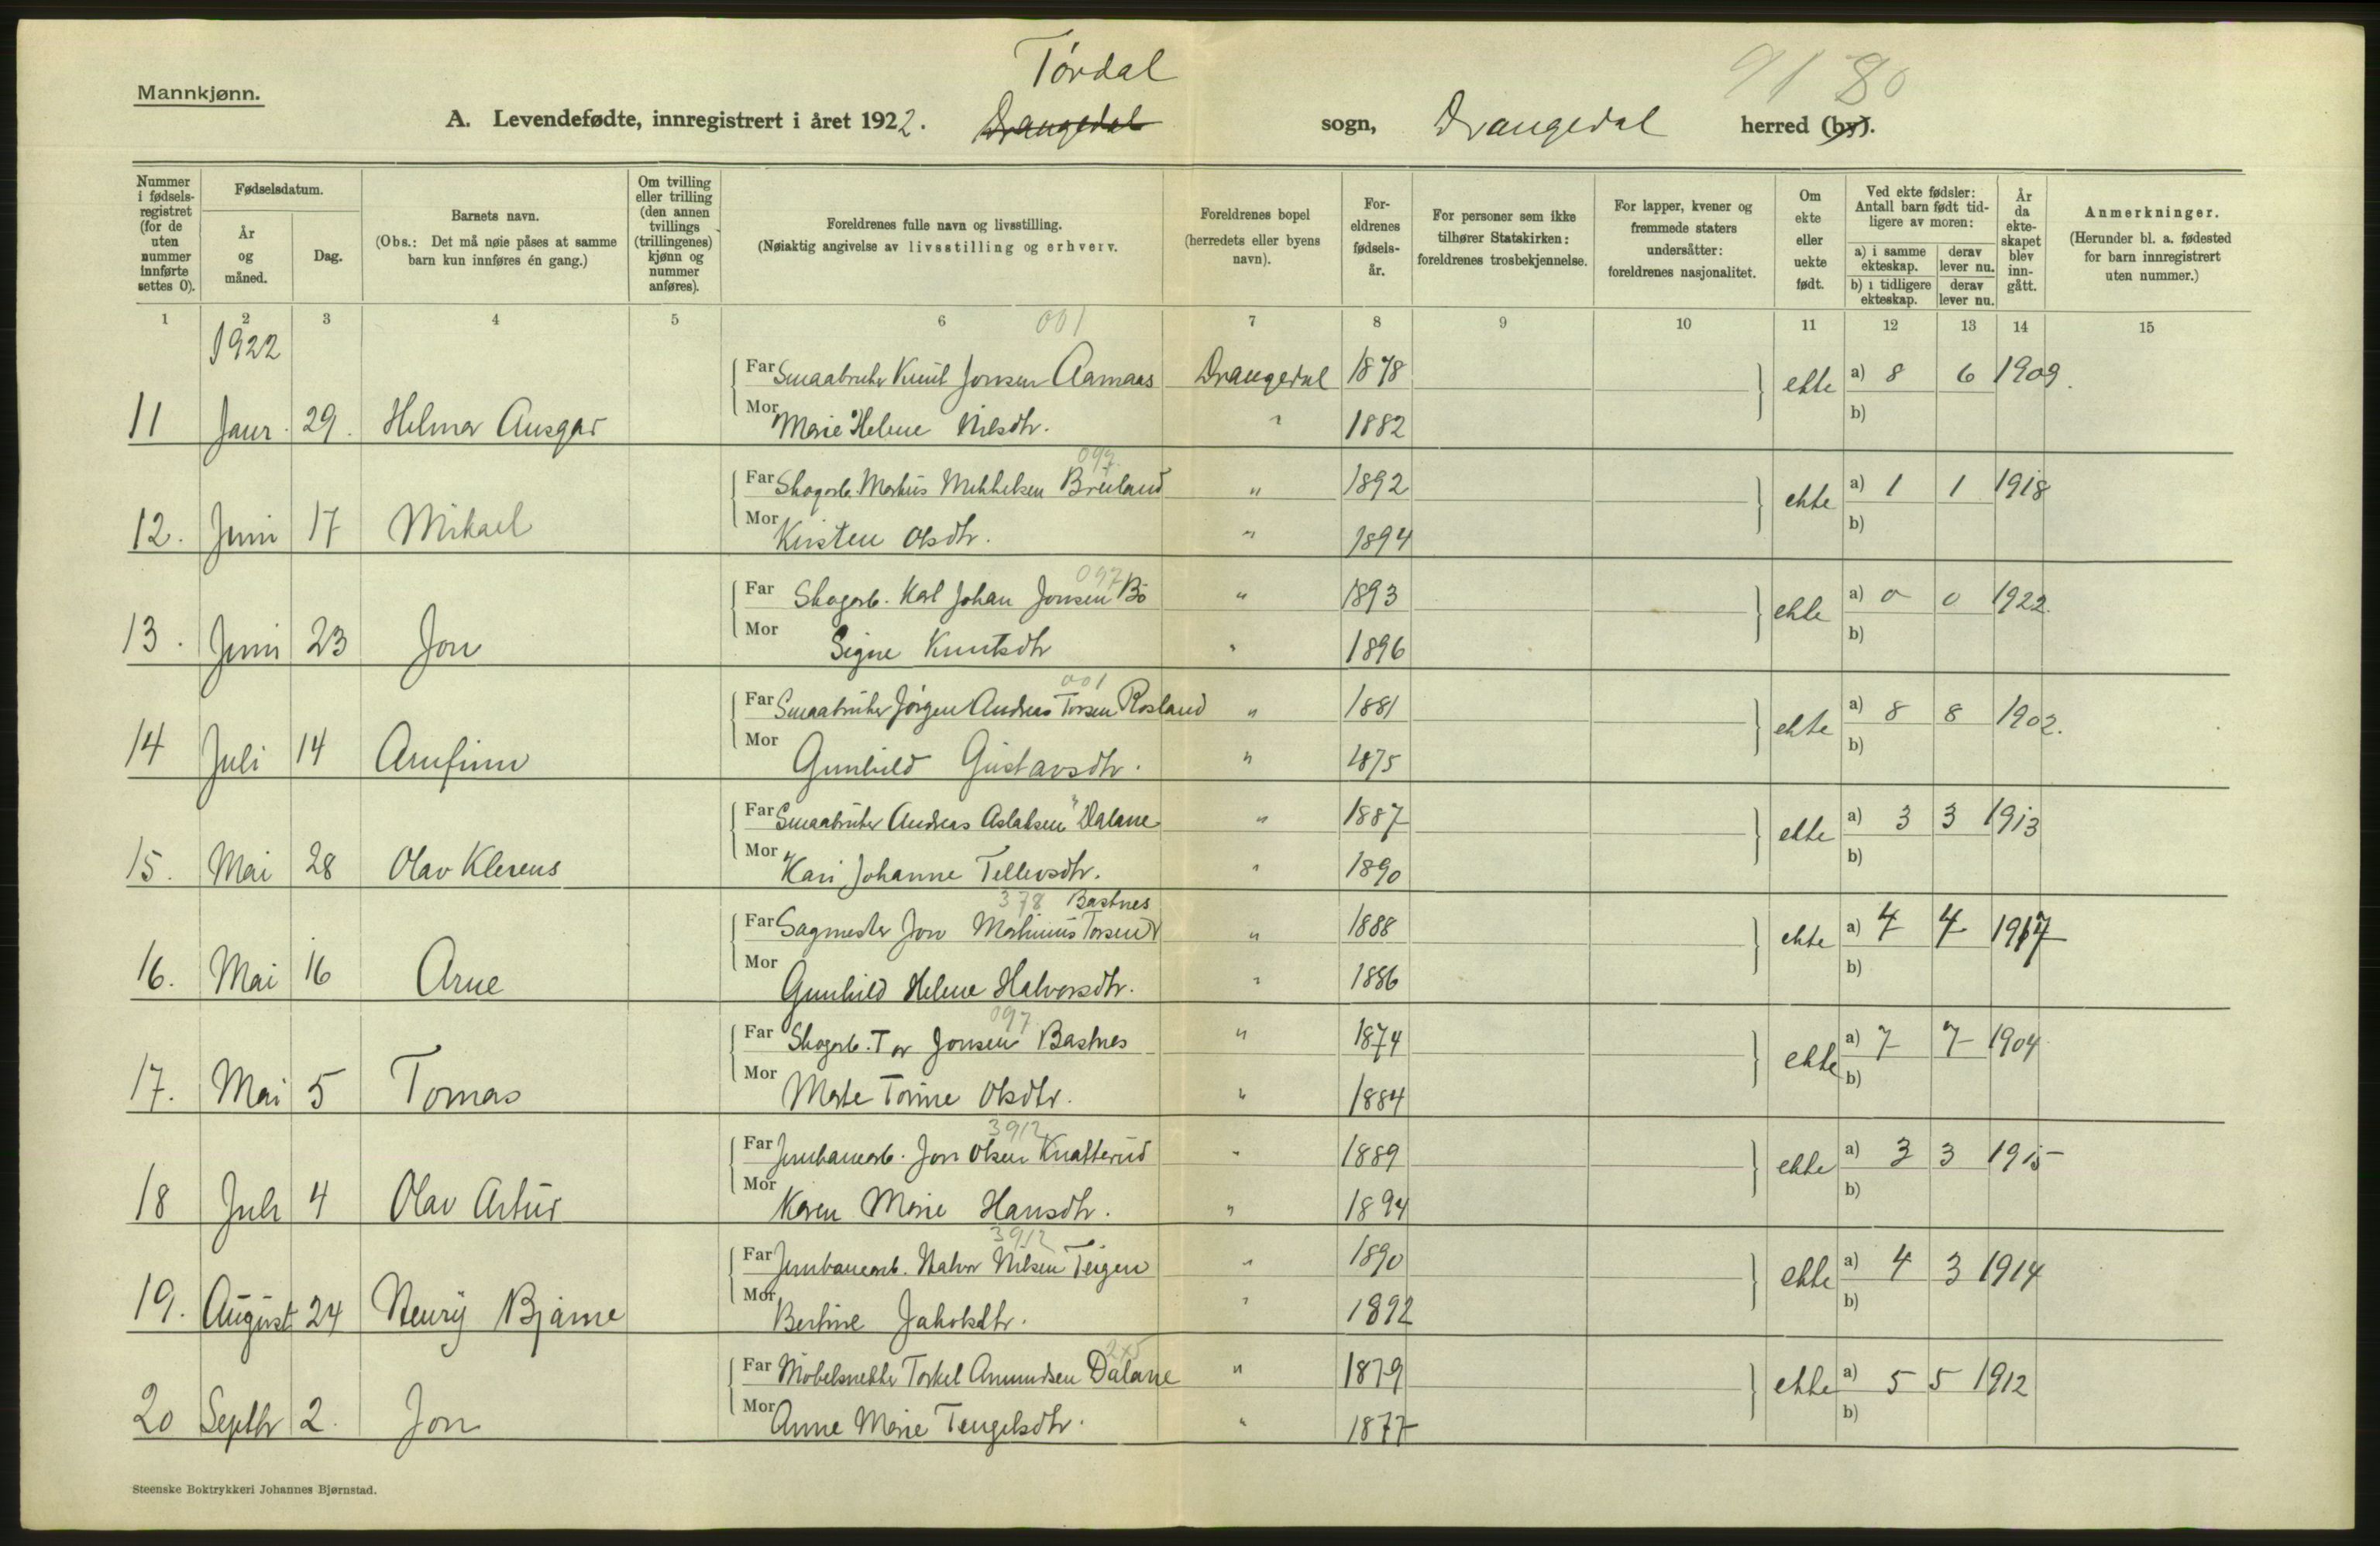 Tórdal
91 80
Mannkjønn.
A. Levendefødte, innregistrert i året 1922. Drangedal sogn, Drangedal herred (by).
Nummer i fødsels-registret (for de uten nummer innførte settes 0).
Fødselsdatum.
År og måned.
Dag.
Barnets navn.
(Obs.: Det må nøie påses at samme barn kun innføres én gang.)
Om tvilling eller trilling (den annen tvillings (trillingenes) kjønn og nummer anføres).
Foreldrenes fulle navn og livsstilling.
(Nøiaktig angivelse av livsstilling og erhverv.
Foreldrenes bopel (herredets eller byens navn).
For-eldrenes fødsels-år.
For personer som ikke tilhører Statskirken: foreldrenes trosbekjennelse.
For lapper, kvener og fremmede staters undersåtter: foreldrenes nasjonalitet.
Om ekte eller uekte født.
Ved ekte fødsler: Antall barn født tid-ligere av moren:
a) i samme ekteskap.
derav lever nu.
b) i tidligere ekteskap.
derav lever nu.
År da ekte-skapet blev inn-gått.
Anmerkninger.
(Herunder bl. a. fødested for barn innregistrert uten nummer.)
1 2 3 4 5 6 7 8 9 10 11 12 13 14 15
1922
001
Far Smaabruker Knut Jonsen Aamaas Drangedal 1878 ekte a) 8 6 1909.
11 Janr. 29. Helmer Ansgar Mor Marie Helene Nilsdtr. " 1882 b)
097
Far Skogarb. Markus Mikkelsen Breiland " 1892 ekte a) 1 1 1918
12. Juni 17 Mikael Mor Kirsten Olsdtr. " 1894 b)
097
Far Skogarb. Karl Johan Jonsen Bö " 1893 ekte a) 0 0 1922.
13. Juni 23 Jon Mor Signe Knutsdtr " 1896 b)
001
Far Smaabruker Jörgen Andreas Torsen Rosland " 1881 ekte a) 8 8 1902.
14 Juli 14 Arnfinn Mor Gunhild Gustavsdtr. " 1875 b)
Far Smaabruker Andreas Aslaksen Dalane " 1887 ekte a) 3 3 1913
15. Mai 28 Olav Klerens Mor Kari Johanne Tellevsdtr. " 1890 b)
378 Bastnes
Far Sagmester Jon Martinius Torsen " 1888 ekte a) 4 4 1917
16. Mai 16 Arne Mor Gunhild Helene Halvorsdtr. " 1886 b)
097
Far Skogarb. Tor Jonsen Bastnes " 1874 ekte a) 7 7 1904
17. Mai 5 Tomas Mor Marte Torine Olsdtr. " 1884 b)
3912
Far Jernbanearb. Jon Olsen Knatterud " 1889 ekte a) 3 3 1915
18 Juli 4 Olav Artur Mor Karen Marie Hansdtr. " 1894 b)
3912
Far Jernbanearb. Halvor Nilsen Teigen " 1890 ekte a) 4 3 1914
19. August 24 Henry Bjarne Mor Bertine Jakobsdtr. " 1892 b)
245
Far Möbelsnekker Torkel Amundsen Dalane " 1879 ekte a) 5 5 1912
20 Septbr 2. Jon Mor Anne Marie Tengelsdtr. " 1877 b)
Steenske Boktrykkeri Johannes Bjørnstad.